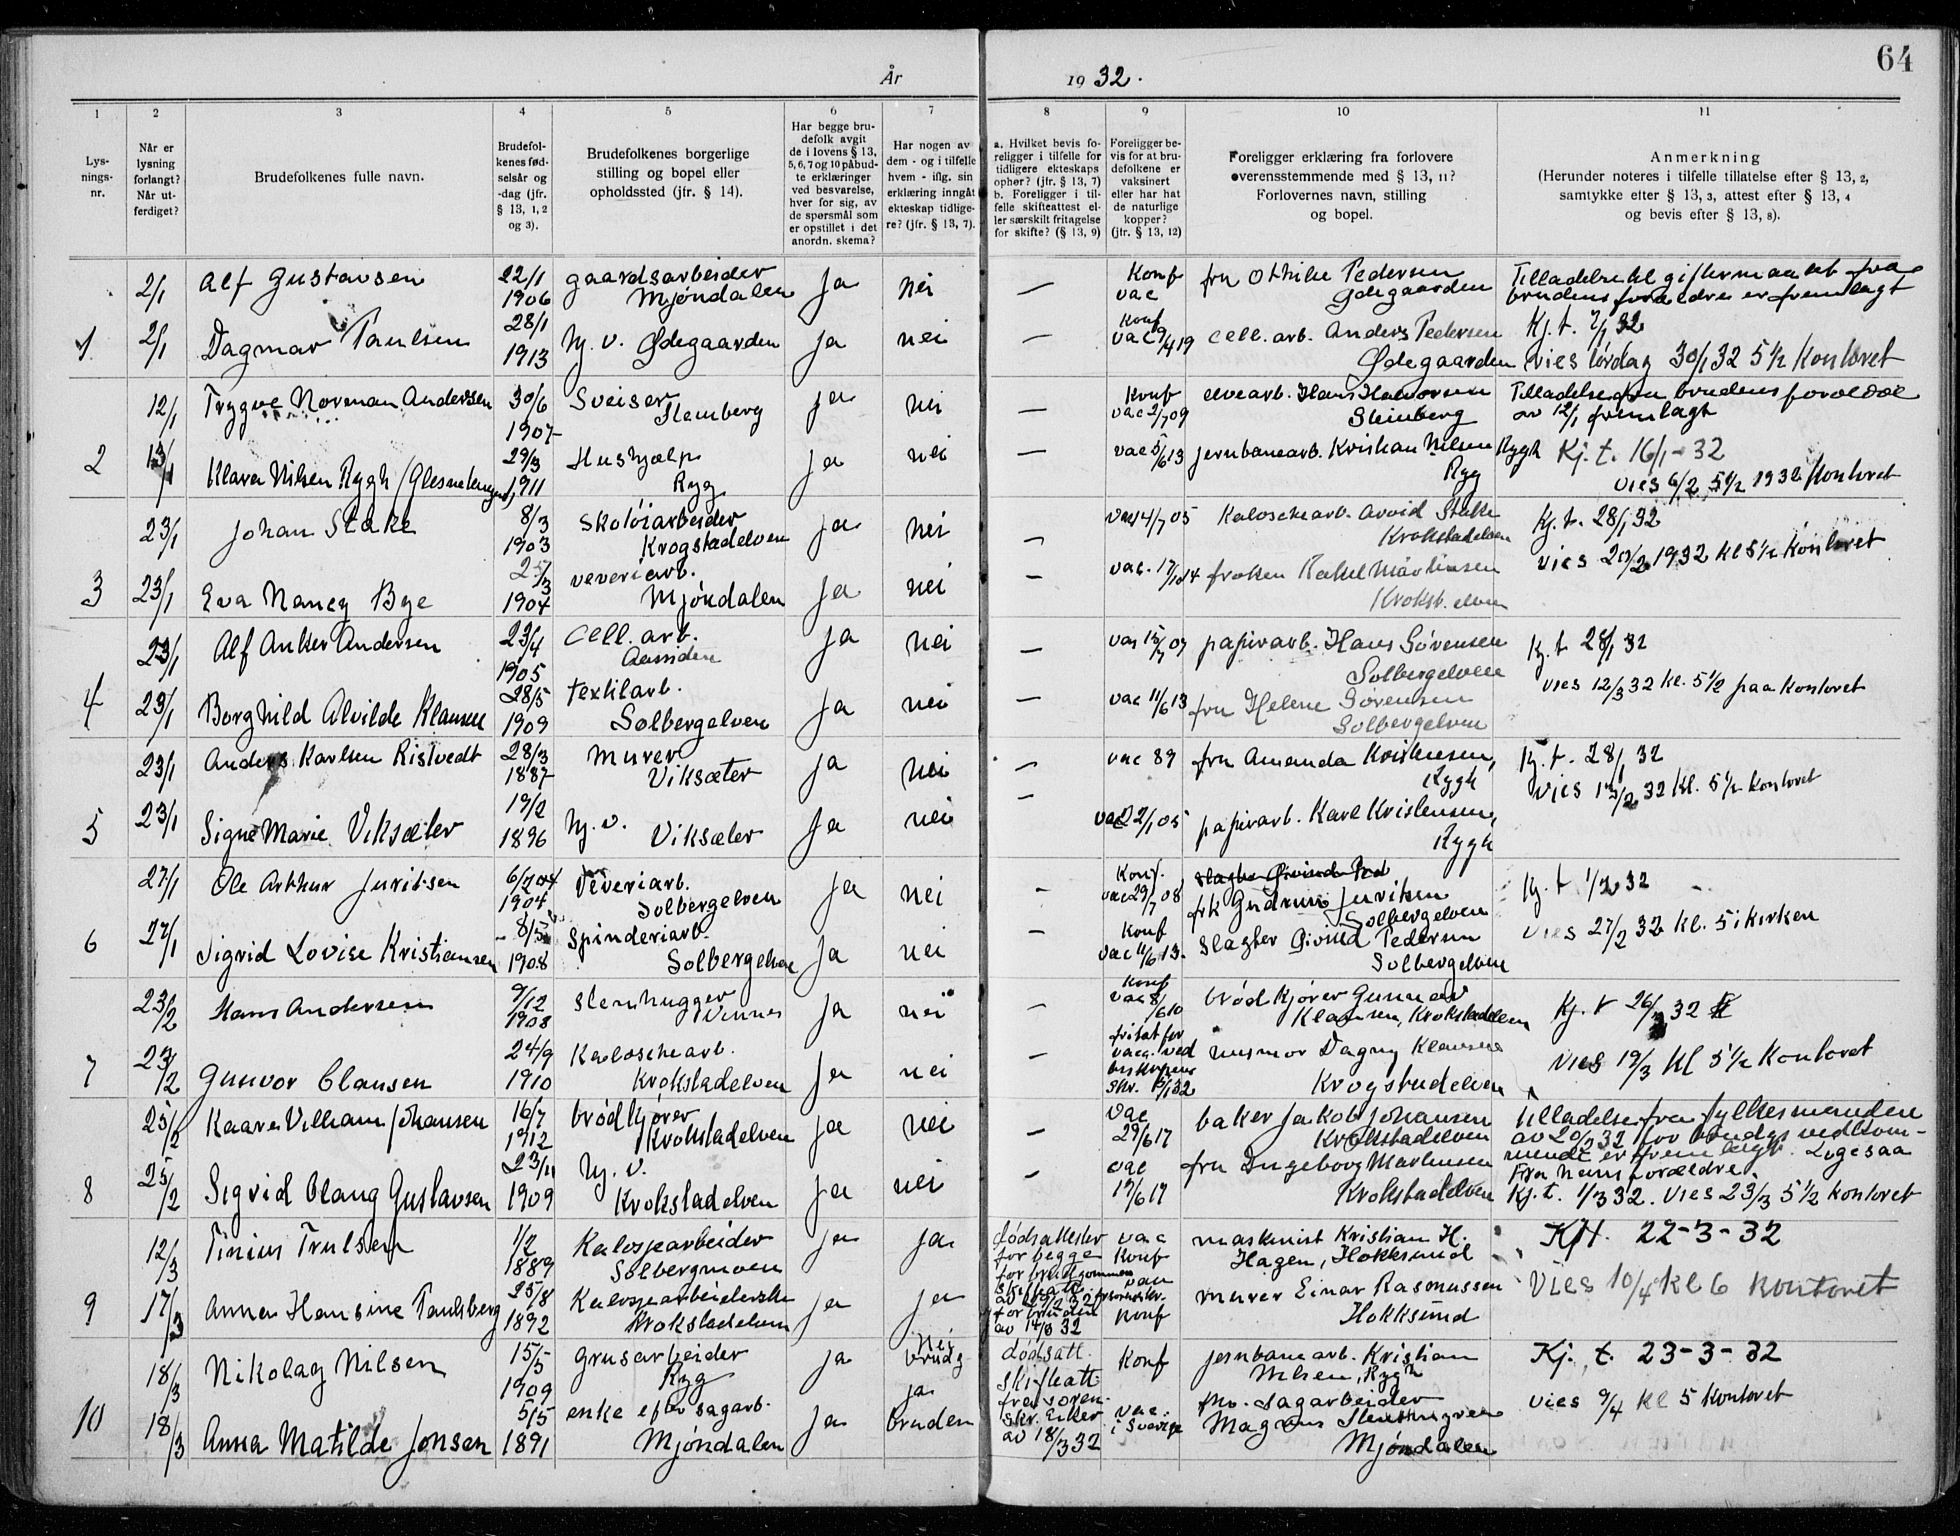 64
År 1932.
1 2 3 4 5 6 7 8 9 10 11
Lys-
nings-
nr.
Når er
lysning
forlangt?
Når ut-
ferdiget?
Brudefolkenes fulle navn.
Brudefol-
kenes fød-
selsår og
-dag (jfr.
§ 13, 1, 2
og 3).
Brudefolkenes borgerlige
stilling og bopel eller
opholdssted (jfr. § 14).
Har begge bru-
defolk avgit
de i lovens § 13,
5, 6, 7 og 10 påbud-
te erklæringer
ved besvarelse,
hver for sig, av
de spørsmål som
er opstillet i det
anordn. skema?
Har nogen av
dem - og i tilfelle
hvem - iflg. sin
erklæring inngåt
ekteskap tidlige-
re? (jfr. § 13, 7).
a. Hvilket bevis fo-
religger i tilfelle for
tidligere ekteskaps
ophør? (jfr. § 13, 7)
b. Foreligger i til-
felle skifteattest el-
ler særskilt fritagelse
for skifte? (§ 13, 9)
Foreligger be-
vis for at bru-
defolkene er
vaksinert
eller har hat
de naturlige
kopper?
(jfr. § 13, 12)
Foreligger erklæring fra forlovere
overensstemmende med § 13, 11?
Forlovernes navn, stilling
og bopel.
Anmerkning
(Herunder noteres i tilfelle tillatelse efter § 13, 2,
samtykke efter § 13, 3, attest efter § 13, 4
og bevis efter § 13, 8).
2/1 Alf Gustavsen 22/1 1906 gaardsarbeider Mjøndalen Ja nei — Konf vac fru Othilie Pedersen Ødegaarden
Tilladelse til giftermaalet fra
brudens forældre er fremlagt
1 2/1 Dagmar Paulsen 28/1 1913 hj. v. Ødegaarden Ja nei — Konf vac 9/4 19 cell. arb. Anders Pedersen Ødegaarden
Kj. t. 7/1 32
vies lørdag 30/1 32 5 1/2 Kontoret
12/1 Trygve Norman Andersen 30/6 1907 Sveiser Stenberg Ja nei — Konf vac 2/7 09 elvearb. Hans Halvorsen Steinberg
Tilladelse fra brudens forældre
av 12/1 fremlagt
2 13/1 Klara Nilsen Rygh 29/3 1911 Hushjælp Ryg Ja nei — vac 5/6 13 jernbanearb. Kristian Nilsen Rygh Ryg
Kj. t. 16/1-32
vies 6/2 5 1/2 1932 Kontoret
23/1 Johan Stake 8/3 1903 Skotøiarbeider Krogstadelven Ja nei — vac 14/7 05 Kaloschearb. Arvid Stake Krokstadelven
Kj. t. 28/1 32
3 23/1 Eva Nancy Bye 25/3 1904 veveriarb. Mjøndalen Ja nei — vac. 17/10 14 frøken Rakel Martinsen Krokst. elven
vies 20/2 1932 kl 5 1/2 Kontoret
23/1 Alf Anker Andersen 23/4 1905 Cell. arb. Aassiden Ja nei — vac 15/7 07 papirarb. Hans Sørensen Solbergelven
Kj. t 28/1 32
4 23/1 Borghild Alvilde Klausen 28/5 1909 textilarb. Solbergelven Ja nei — vac 11/6 13 fru Helene Sørensen Solbergelven
vies 12/3 32 kl. 5 1/2 paa Kontoret
23/1 Anders Karlsen Ristvedt 28/3 1887 Murer Viksæter Ja nei — vac 89 fru Amanda Kristensen, Rygh
Kj. t. 28/1 32
5 23/1 Signe Marie Viksæter 19/2 1896 hj. v. Viksæter Ja nei — vac 22/1 05 papirarb. Karl Kristensen, Rygh
vies 13/2 32 Kl. 5 1/2 Kontoret
27/1 Ole Arthur Juritsen 6/7 04 1904 Veveriarb. Solbergelven Ja nei — Konf. vac 29/7 08 frk Gudrun Juritsen Solbergelven
Kj. t 1/2 32
6 27/1 Sigrid Lovise Kristiansen 8/5 1908 Spinderiarb. Solbergelven Ja nei — Konf vac 11/6 13. Slagter Øivind Pedersen Solbergelven
vies 27/2 32 kl. 5 i kirken
23/2 Hans Andersen 9/12 1908 stenhugger Vinnes Ja nei — Konf vac 8/6 10 brødkjører Gunnar Klausen, Krokstadelven
Kj. t 26/2 32
7 23/2 Gunvor Clausen 24/9 1910 Kaloschearb. Krokstadelven Ja nei — fritat for vacc. ved skr. husmor Dagny Klausen Krogstadelven
vies 19/3 kl 5 1/2 Kontoret
25/2 Kaare Villiam Johansen 16/7 1912 brødkjører Krokstadelven Ja nei — vac 29/6 17 baker Jakob Johansen Krokstadelven
Tilladelse fra fylkesmanden
av 20/1 32 for vedkom-
mende er fremlagt. Ligesaa
fra hans forældre.
8 25/2 Sigrid Olaug Gustavsen 23/11 1909 hj. v. Krokstadelven Ja nei — vac 19/6 17 fru Ingeborg Martinsen Krokstadelven
Kj. t. 1/3 32. Vies 23/3 5 1/2 Kontoret
12/3 Tinius Trulsen 1/2 1889 Kalosjearbeider Solbergmoen Ja Ja dødsattester for begge for brudgommen vac Konf maskinist Kristian H. Hagen, Hokksund
Kjt. 22-3-32
9 17/3 Anna Hansine Paulsberg 25/8 1892 Kalosjearbeiderske Krokstadelven Ja Ja for bruden av 14/3 32 Konf murer Einar Rasmussen Hokksund
Vies 10/4 kl 6 Kontoret
18/3 Nikolay Nilsen 15/5 1909 Grusarbeider Ryg Ja nei brudg dødsatt. Konf jernbanearb. Kristian Nilsen, Rygh
Kj. t. 23-3-32
10 18/3 Anna Matilde Jonsen 5/5 1891 enke efter sagarb. Mjøndalen Ja ja bruden skifteatt. fra soren- skr. Eiker av 18/3 32 vac. i Sverige fhv. sagarbeider Magnus Mjøndalen
vies 9/4 kl 5 Kontoret